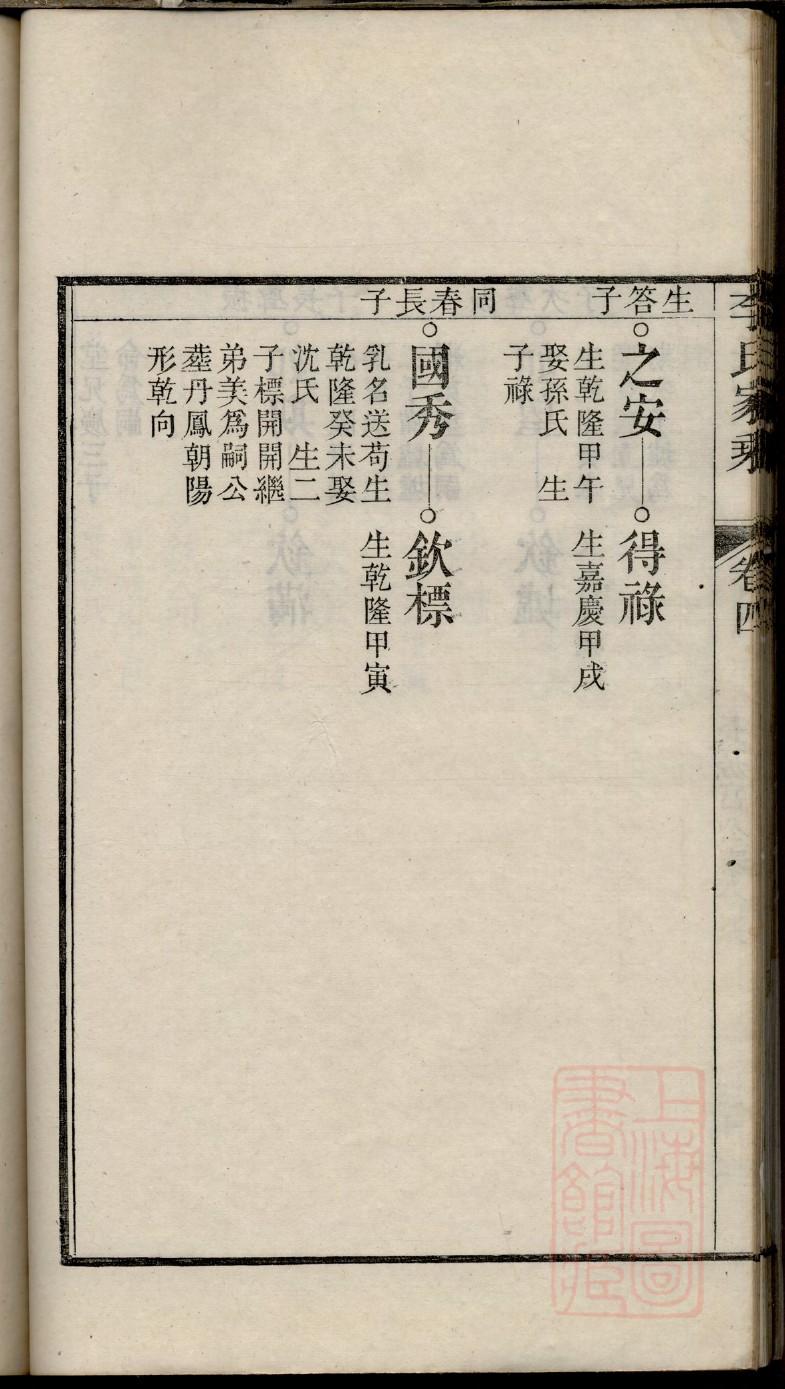 李氏家乘
卷四
生答子
之安
生乾隆甲午
娶孫氏 生
子祿
得祿
生嘉慶甲戌
同春長子
國秀
乳名送苟生
乾隆癸未娶
沈氏 生二
子標開開繼
弟美為嗣公
塟丹鳳朝陽
形乾向
欽標
生乾隆甲寅
上海圖
書館藏